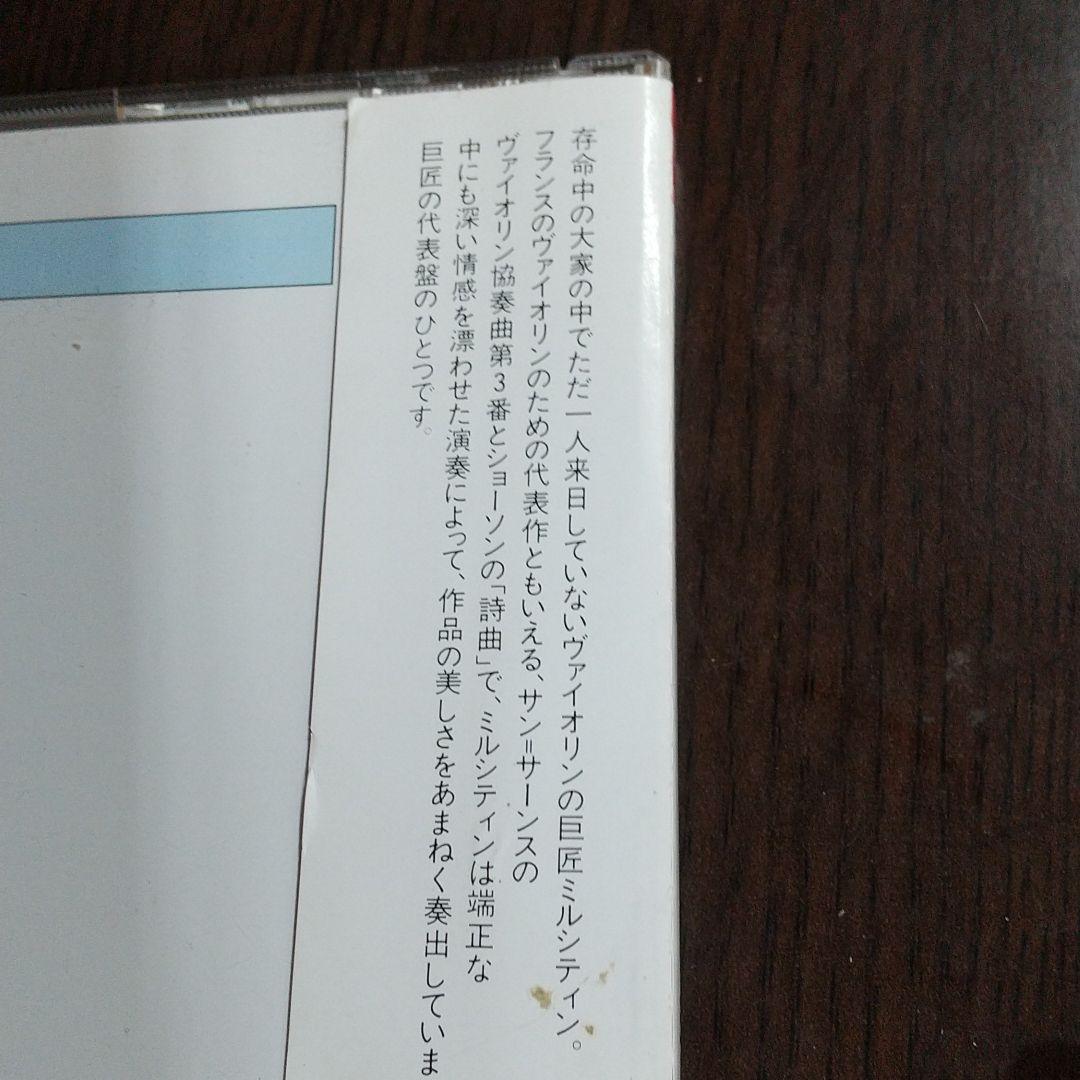 存命中の大家の中でただ一人来日していないヴァイオリンの巨匠ミルシティン。
フランスのヴァイオリンのための代表作ともいえる、サン=サーンスの
ヴァイオリン協奏曲第3番とショーソンの「詩曲」で、ミルシティンは端正な
中にも深い情感を漂わせた演奏によって、作品の美しさをあまねく奏出していま
巨匠の代表盤のひとつです。